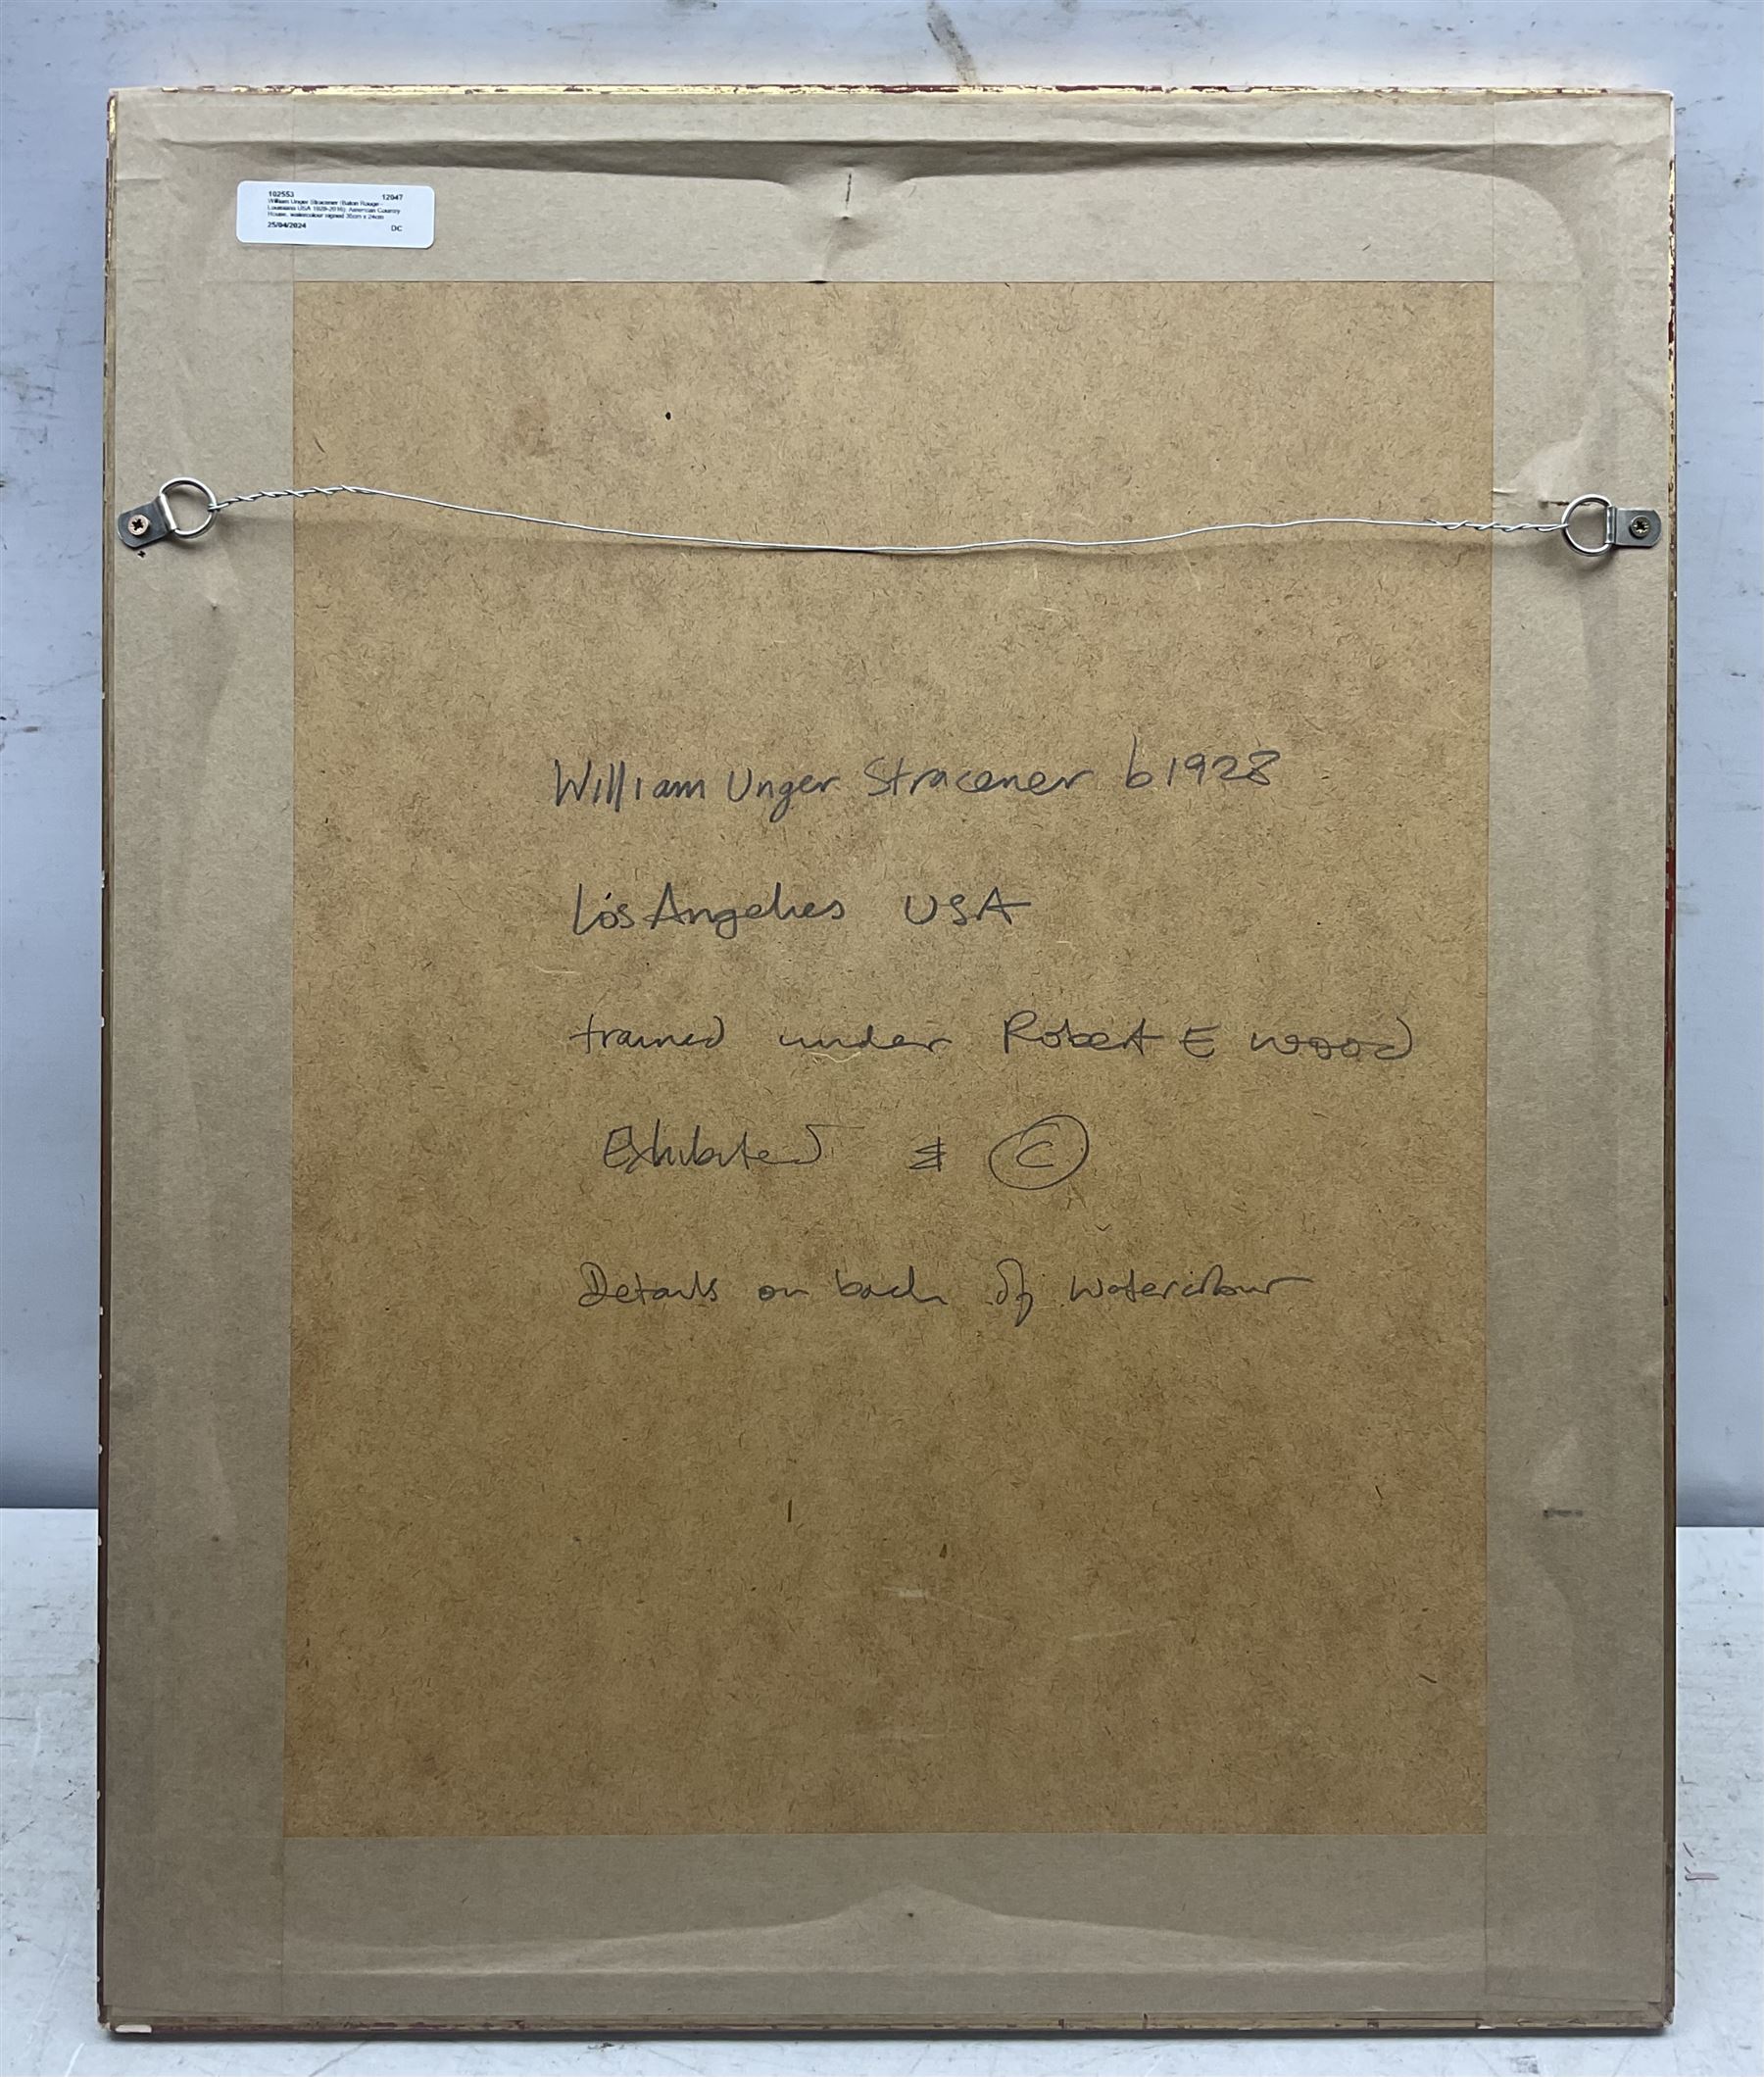 102553 12047
William Unger Stracener (Baton Rouge -
Louisiana USA 1928-2016): American Country
House, watercolour signed 35cm x 24cm
25/04/2024 DC
William Unger Stracener b1928
Los Angelies USA
trained under Robert E Wood
Exhibited & ©
Details on back of Watercolour